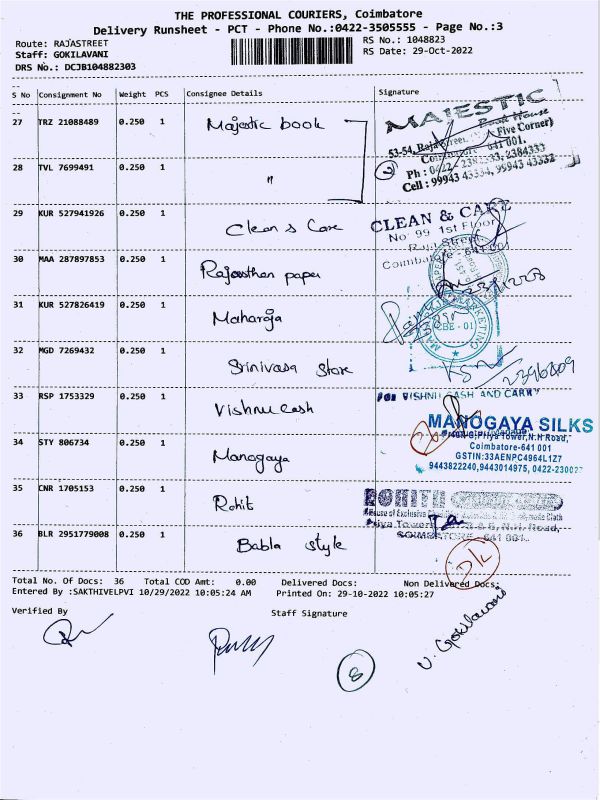 THE PROFESSIONAL COURIERS, Coimbatore
Delivery Runsheet - PCT - Phone No.:0422-3505555 - Page No.:3
Route: RAJASTREET
RS No.: 1048823
Staff: GOKILAVANI
RS Date: 29-Oct-2022
DRS No.: DCJB104882303
S No Consignment No Weight PCS Consignee Details Signature
27 TRZ 21088489 0.250 1 Majestic book
MAJESTIC
Book House
53-54, Raja Street, Five Corner)
Coimbatore - 641 001.
Ph : 0422 - 2384333
Cell : 99943 43334, 99943 43332
28 TVL 7699491 0.250 1 "
29 KUR 527941926 0.250 1 Clean & Care
CLEAN & CARE
No: 99 1st Floor
Raja Street
Coimbatore - 641 001
30 MAA 287897853 0.250 1 Rajasthan paper
31 KUR 527826419 0.250 1 Maharaja
MARKETING
CBE - 01
32 MGD 7269432 0.250 1 Srinivasa Store
2396809
33 RSP 1753329 0.250 1 Vishnu Cash
For VISHNU CASH AND CARRY
34 STY 806734 0.250 1 Manogaya
MANOGAYA SILKS
Priya Tower, N.H Road,
Coimbatore-641 001
GSTIN:33AENPC4964L1Z7
9443822240,9443014975, 0422-230027
35 CNR 1705153 0.250 1 Rohit
ROHITH
House of Exclusive
Priya Towers, N.H. Road,
COIMBATORE - 641 001.
36 BLR 2951779008 0.250 1 Babla style
D/L
Total No. Of Docs: 36 Total COD Amt: 0.00 Delivered Docs: Non Delivered Docs:
Entered By :SAKTHIVELPVI 10/29/2022 10:05:24 AM Printed On: 29-10-2022 10:05:27
Verified By Staff Signature
8
V. Gokilavani